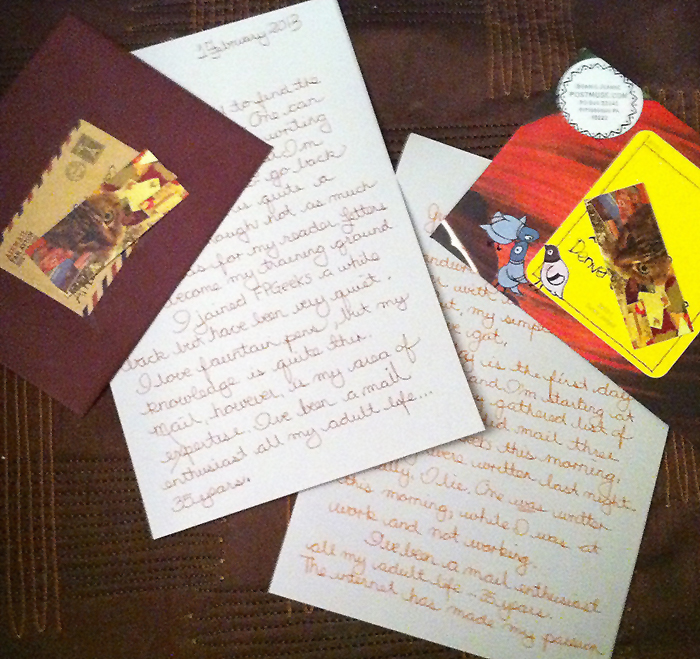 1 February 2013
to find the
One can
writing
I'm
go back
is quite a
though not as much
as for my reader letters
become my training ground
I joined FPGeeks a while
back but have been very quiet.
I love fountain pens, but my
knowledge is quite thin.
Mail, however, is my area of
expertise. I've been a mail
enthusiast all my adult life...
35 years.
my simple
got,
is the first day
and I'm starting at
gathered list of
mail three
this morning,
were written last night.
I lie. One was written
this morning, while I was at
work and not working.
I've been a mail enthusiast
all my adult life - 35 years.
The internet has made my passion
POSTMUSE.COM
Denver